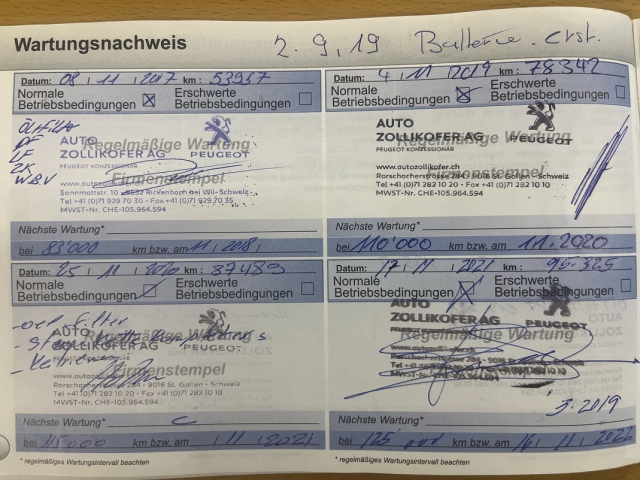 Wartungsnachweis 2.9.19 Batterie erst.
Datum: 08 11 2017 km: 53957
Normale Betriebsbedingungen ☒ Erschwerte Betriebsbedingungen ☐
Ölfilter
PF
LF
ZK
W.B.V
AUTO
ZOLLIKOFER AG PEUGEOT
PEUGEOT KONZESSIONÄR
Regelmäßige Wartung
Firmenstempel
www.autozollikofer.ch
Sonnmattstr. 10 - 9532 Rickenbach bei Wil - Schweiz
Tel +41 (0)71 929 70 30 - Fax +41 (0)71 929 70 35
MWST-Nr. CHE-105.964.594
Nächste Wartung*
bei 83'000 km bzw. am 11 2018
Datum: 4 11 2019 km: 78342
Normale Betriebsbedingungen ☒ Erschwerte Betriebsbedingungen ☐
AUTO
ZOLLIKOFER AG PEUGEOT
PEUGEOT KONZESSIONÄR
Regelmäßige Wartung
Firmenstempel
www.autozollikofer.ch
Rorschacherstrasse 284 - 9016 St. Gallen - Schweiz
Tel +41 (0)71 282 10 20 - Fax +41 (0)71 282 10 10
MWST-Nr. CHE-105.964.594
Nächste Wartung*
bei 110'000 km bzw. am 11.2020
Datum: 25 11 2020 km: 87489
Normale Betriebsbedingungen ☑ Erschwerte Betriebsbedingungen ☐
- oel filter
AUTO
ZOLLIKOFER AG PEUGEOT
PEUGEOT KONZESSIONÄR
Regelmäßige Wartung
Firmenstempel
www.autozollikofer.ch
Rorschacherstrasse 284 - 9016 St. Gallen - Schweiz
Tel +41 (0)71 282 10 20 - Fax +41 (0)71 282 10 10
MWST-Nr. CHE-105.964.594
Nächste Wartung*
bei 115000 km bzw. am 11 2021
* regelmäßiges Wartungsintervall beachten
Datum: 17 11 2021 km: 95.325
Normale Betriebsbedingungen ☒ Erschwerte Betriebsbedingungen ☐
AUTO
ZOLLIKOFER AG PEUGEOT
Regelmäßige Wartung
3.2019
Nächste Wartung*
bei 125 000 km bzw. am 16 11 2022
* regelmäßiges Wartungsintervall beachten